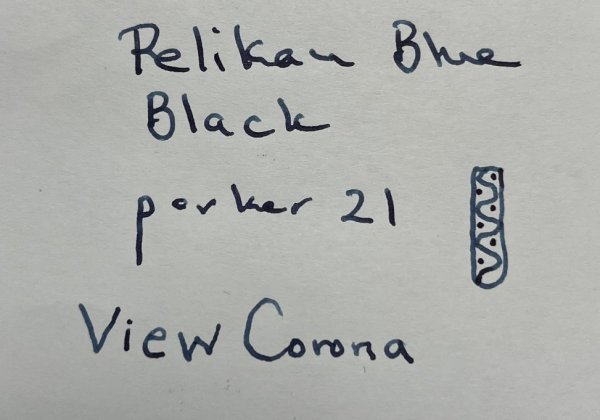 Pelikan Blue
Black
parker 21
View Corona